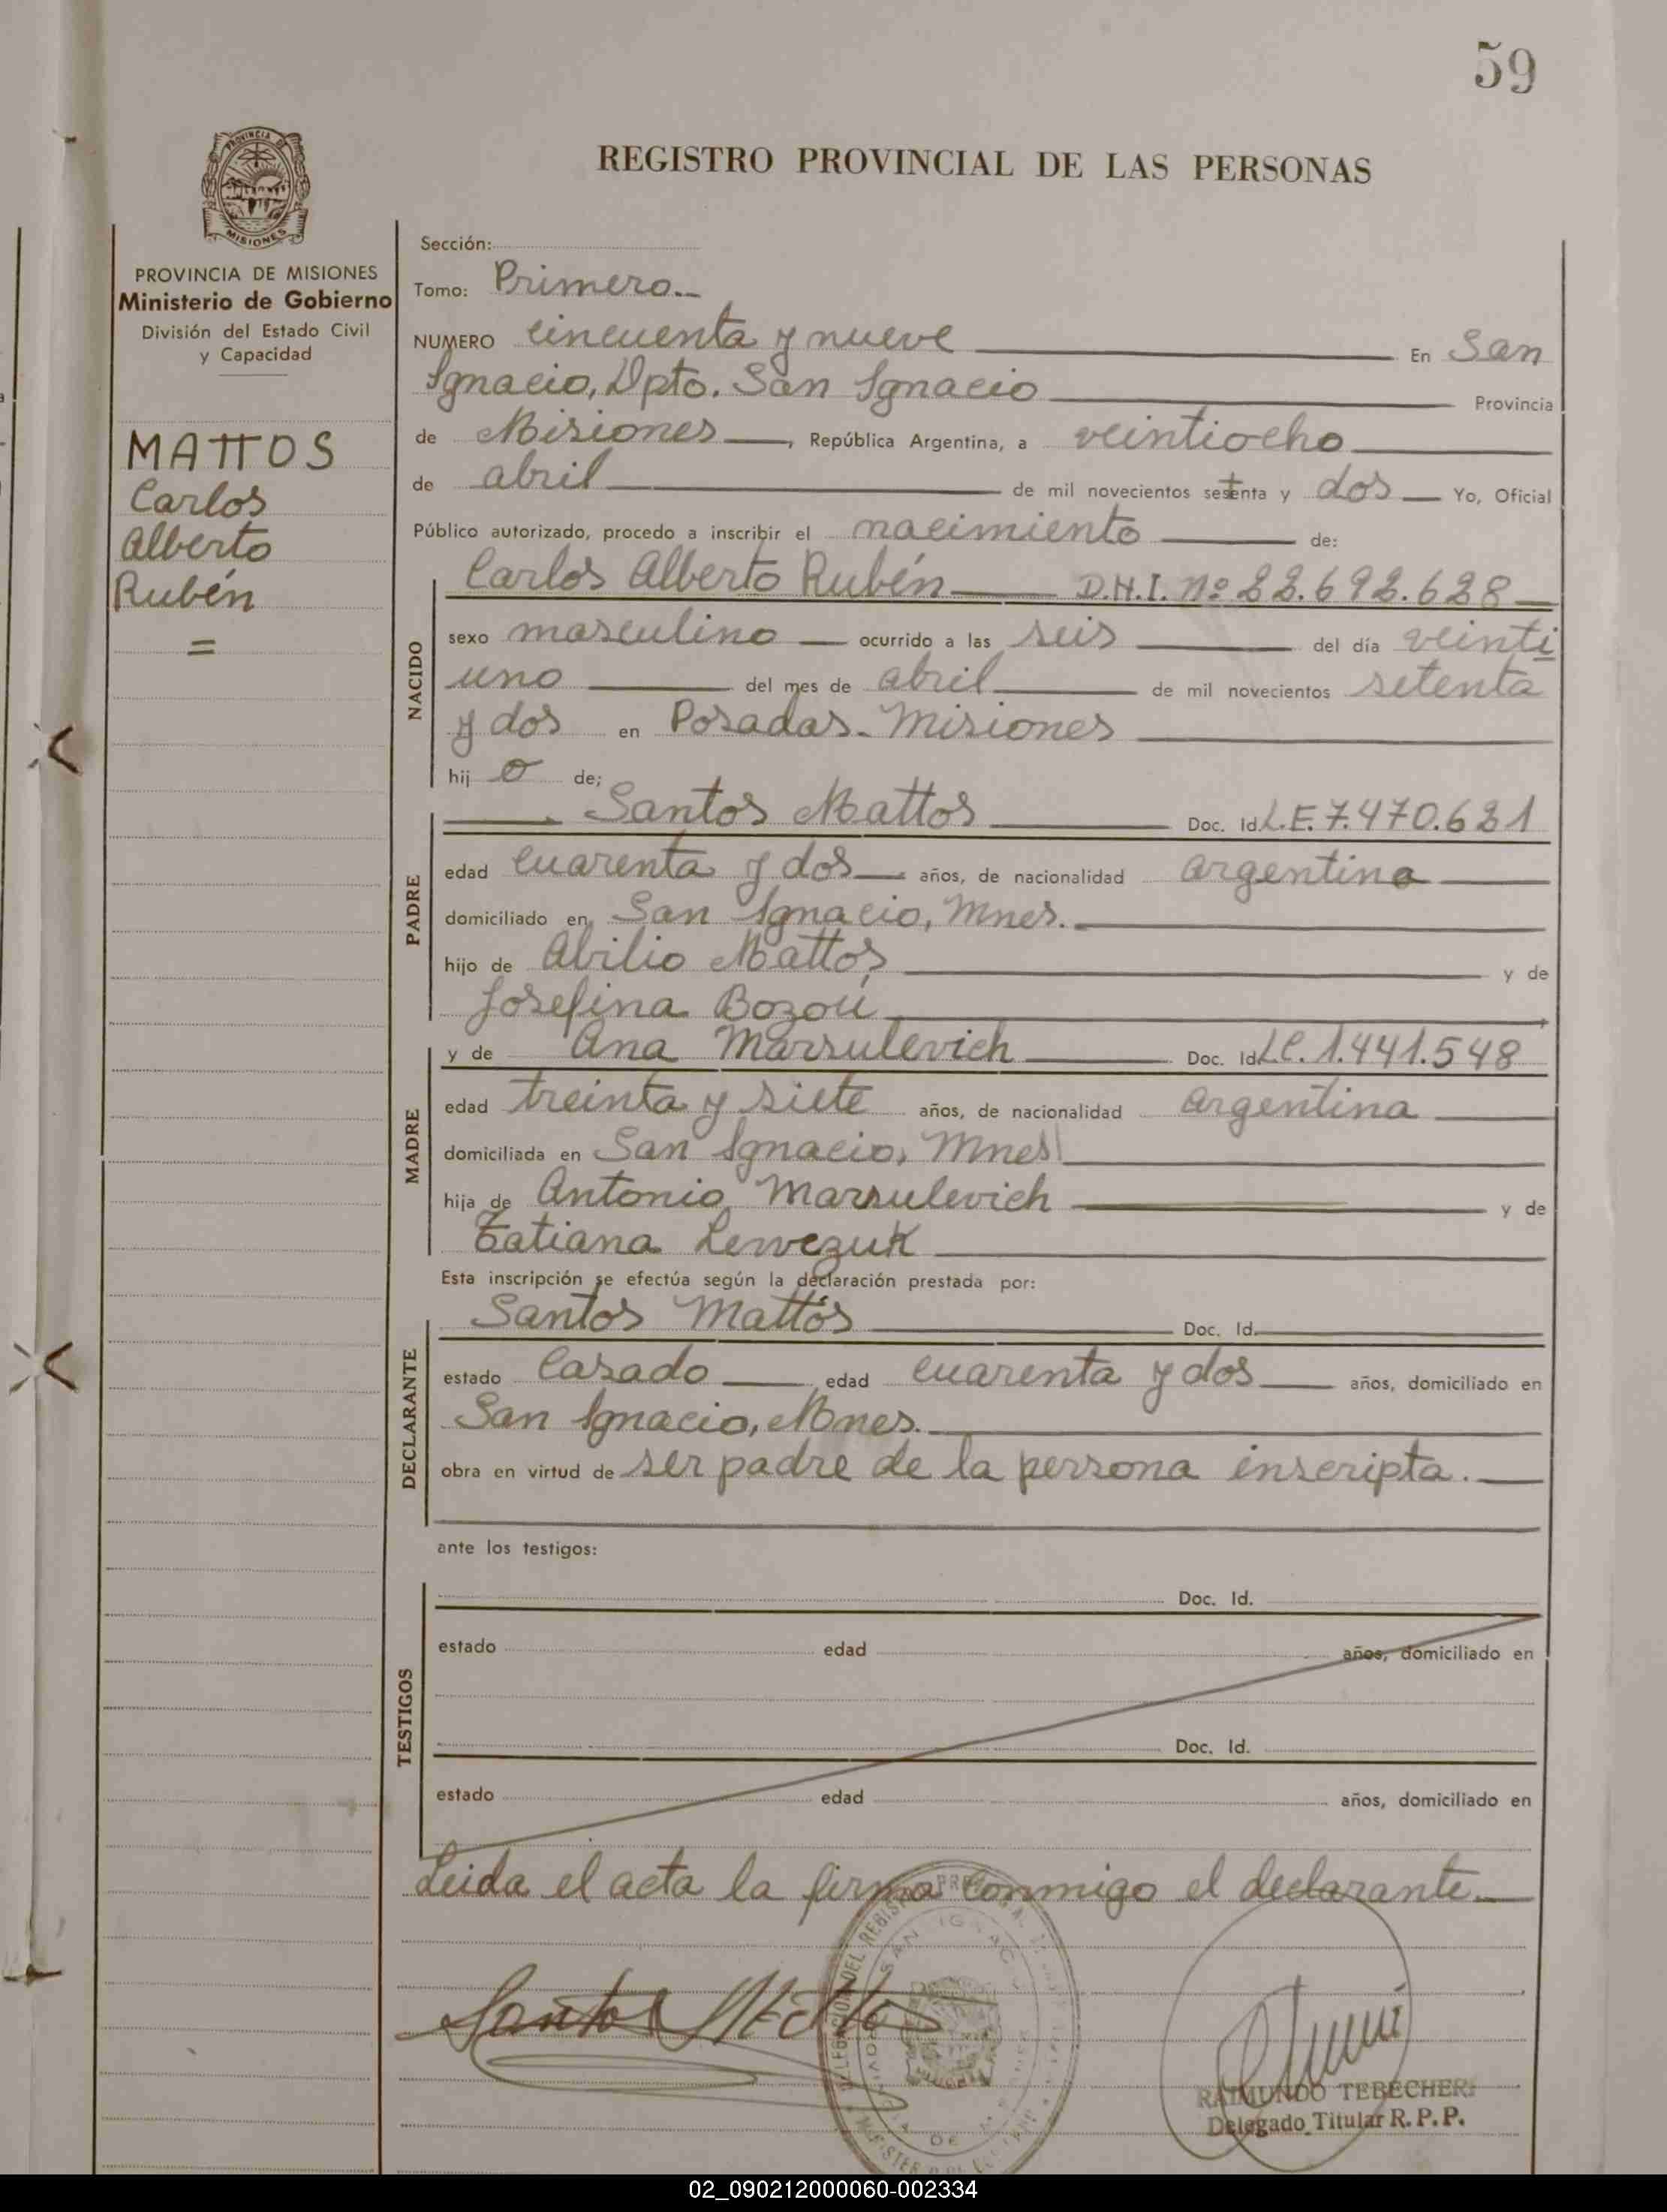 59
PROVINCIA DE
MISIONES
PROVINCIA DE MISIONES
Ministerio de Gobierno
División del Estado Civil
y Capacidad
MATTOS
Carlos
Alberto
Rubén
=
REGISTRO PROVINCIAL DE LAS PERSONAS
Sección:
Tomo: Primero
NUMERO cincuenta y nueve En San
Ignacio, Dpto. San Ignacio Provincia
de Misiones, República Argentina, a veintiocho
de abril de mil novecientos setenta y dos Yo, Oficial
Público autorizado, procedo a inscribir el nacimiento de:
Carlos Alberto Rubén D.N.I. Nº 22.692.628
NACIDO
sexo masculino ocurrido a las seis del día veinti
uno del mes de abril de mil novecientos setenta
y dos en Posadas - Misiones
hij o de;
PADRE
Santos Mattos Doc. Id. L.E. 7.470.621
edad cuarenta y dos años, de nacionalidad argentina
domiciliado en San Ignacio, Mnes.
hijo de Abilio Mattos y de
Josefina Bozou
MADRE
y de Ana Marsulevich Doc. Id. L.C. 1.441.548
edad treinta y siete años, de nacionalidad argentina
domiciliada en San Ignacio, Mnes
hija de Antonio Marsulevich y de
Tatiana Lewczuk
Esta inscripción se efectúa según la declaración prestada por:
DECLARANTE
Santos Mattos Doc. Id.
estado Casado edad cuarenta y dos años, domiciliado en
San Ignacio, Mnes.
obra en virtud de ser padre de la persona inscripta.
ante los testigos:
TESTIGOS
Doc. Id.
estado edad años, domiciliado en
Doc. Id.
estado edad años, domiciliado en
Leida el acta la firma conmigo el declarante.
Santos Mattos
RAIMUNDO TEBECHERI
Delegado Titular R. P. P.
02_090212000060-002334